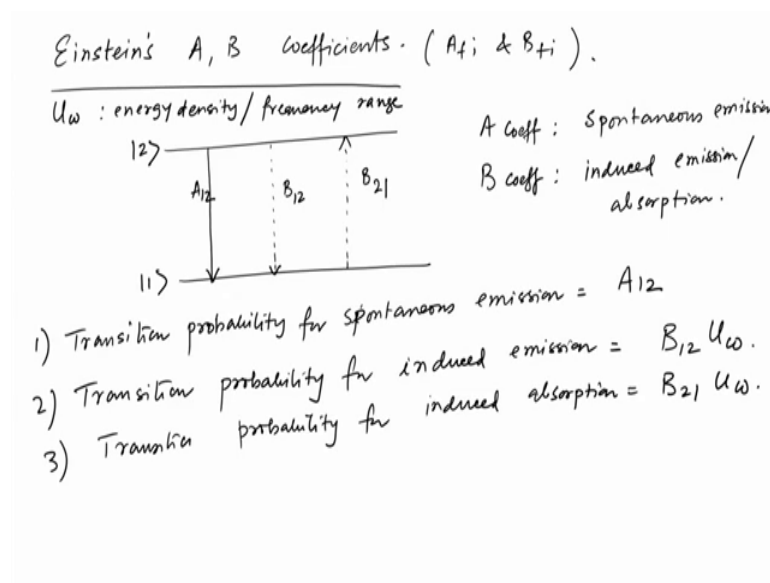 Einstein's A, B coefficients. (Afi & Bfi).
Uω : energy density/frequency range
A coeff : Spontaneous emission
B coeff : induced emission/
absorption.
|2>
A12
B12
B21
|1>
1) Transition probability for spontaneous emission = A12
2) Transition probability for induced emission = B12 Uω.
3) Transition probability for induced absorption = B21 Uω.